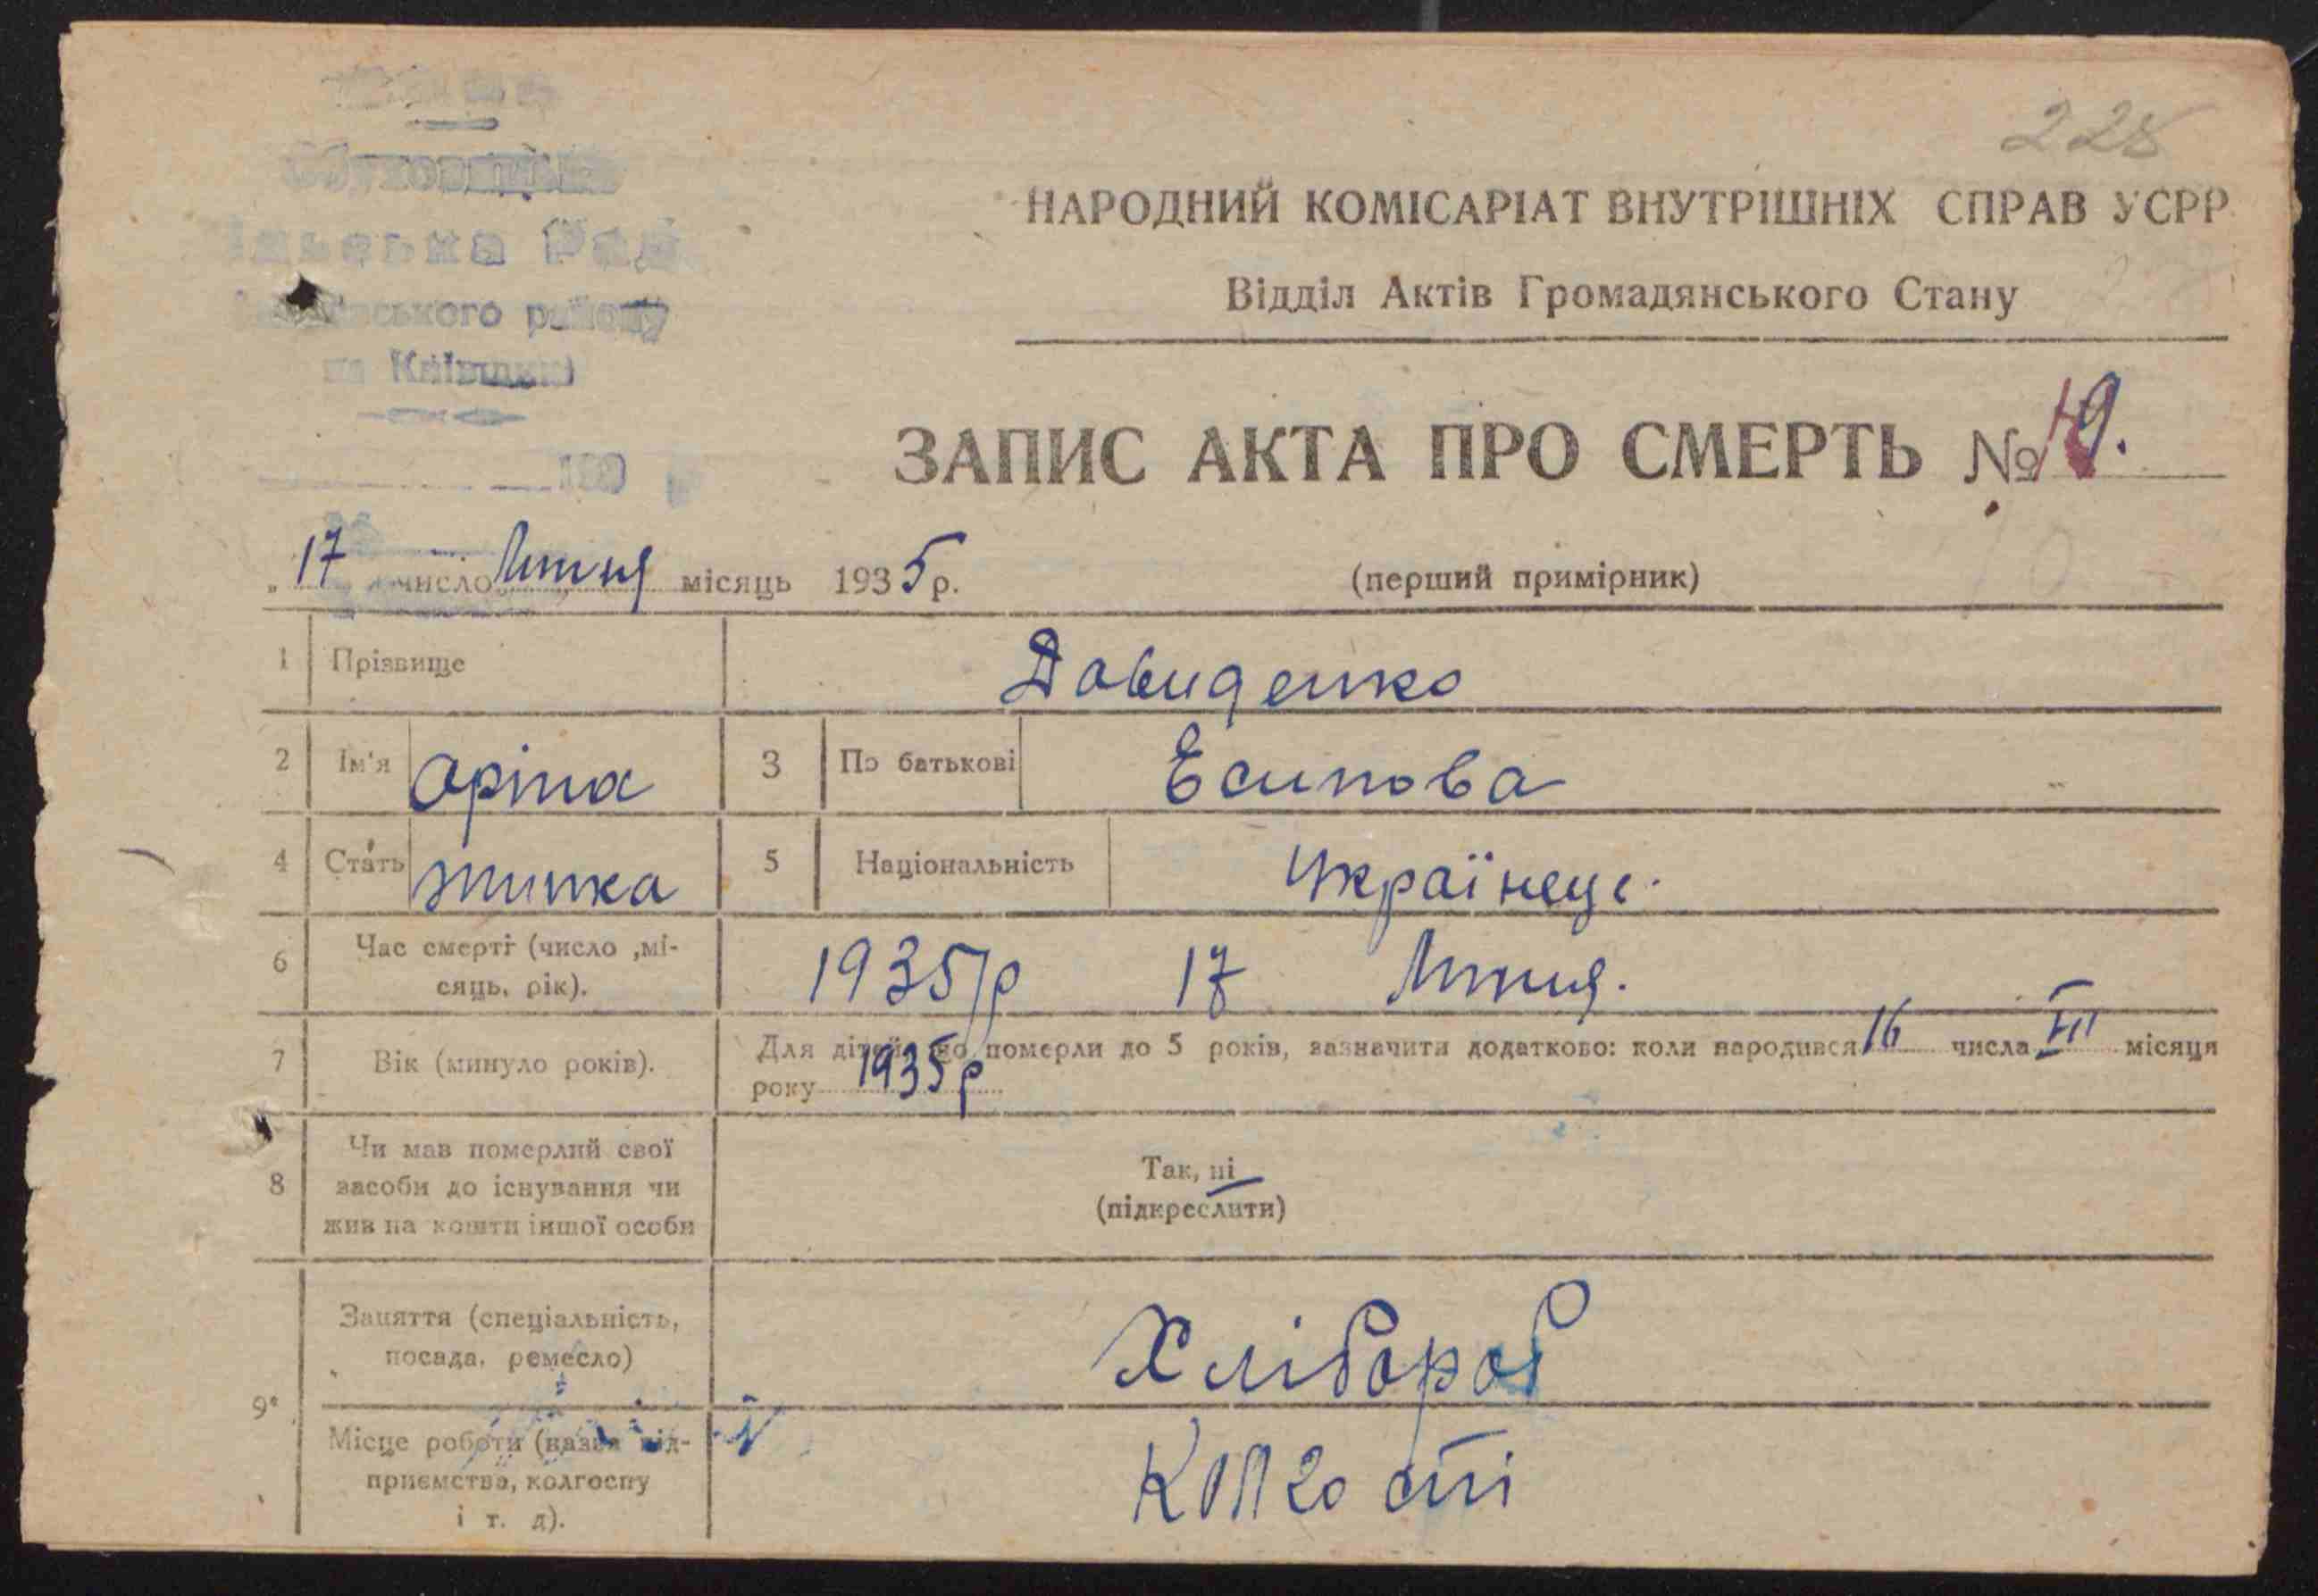 228
НАРОДНИЙ КОМІСАРІАТ ВНУТРІШНІХ СПРАВ УСРР
Відділ Актів Громадянського Стану
ського району
на Київщині
ЗАПИС АКТА ПРО СМЕРТЬ № 19.
193 р
„ 17 число Липня місяць 1935 р.
(перший примірник)
1 Прізвище Давиденко
2 Ім'я Оріна 3 По батькові Есипова
4 Стать жинка 5 Національність Українець.
6 Час смерті (число ,мі-
сяць, рік). 1935р 17 Липня.
7 Вік (минуло років). Для дітей, що померли до 5 років, зазначити додатково: коли народився 16 числа III місяця
року 1935р
8 Чи мав померлий свої
засоби до існування чи
жив на кошти іншої особи
Так, ні
(підкреслити)
9* Заняття (спеціальність,
посада, ремесло) Хлібороб
Місце роботи (назва під-
приємства, колгоспу
і т. д).